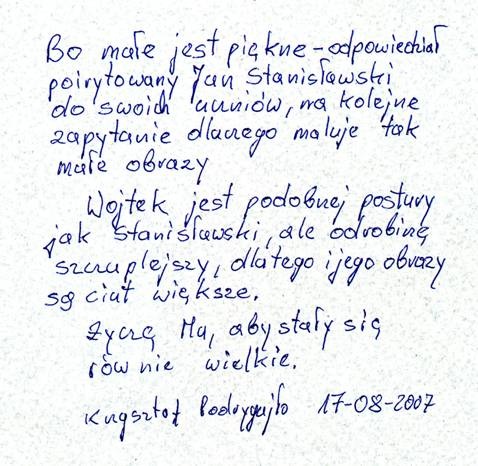 Bo małe jest piękne – odpowiedział
poirytowany Jan Stanisławski
do swoich uczniów, na kolejne
zapytanie dlaczego maluje tak
małe obrazy
Wojtek jest podobnej postury
jak Stanisławski, ale odrobinę
szczuplejszy, dlatego i jego obrazy
są ciut większe.
Życzę Mu, aby stały się
równie wielkie.
Krzysztof 17-08-2007